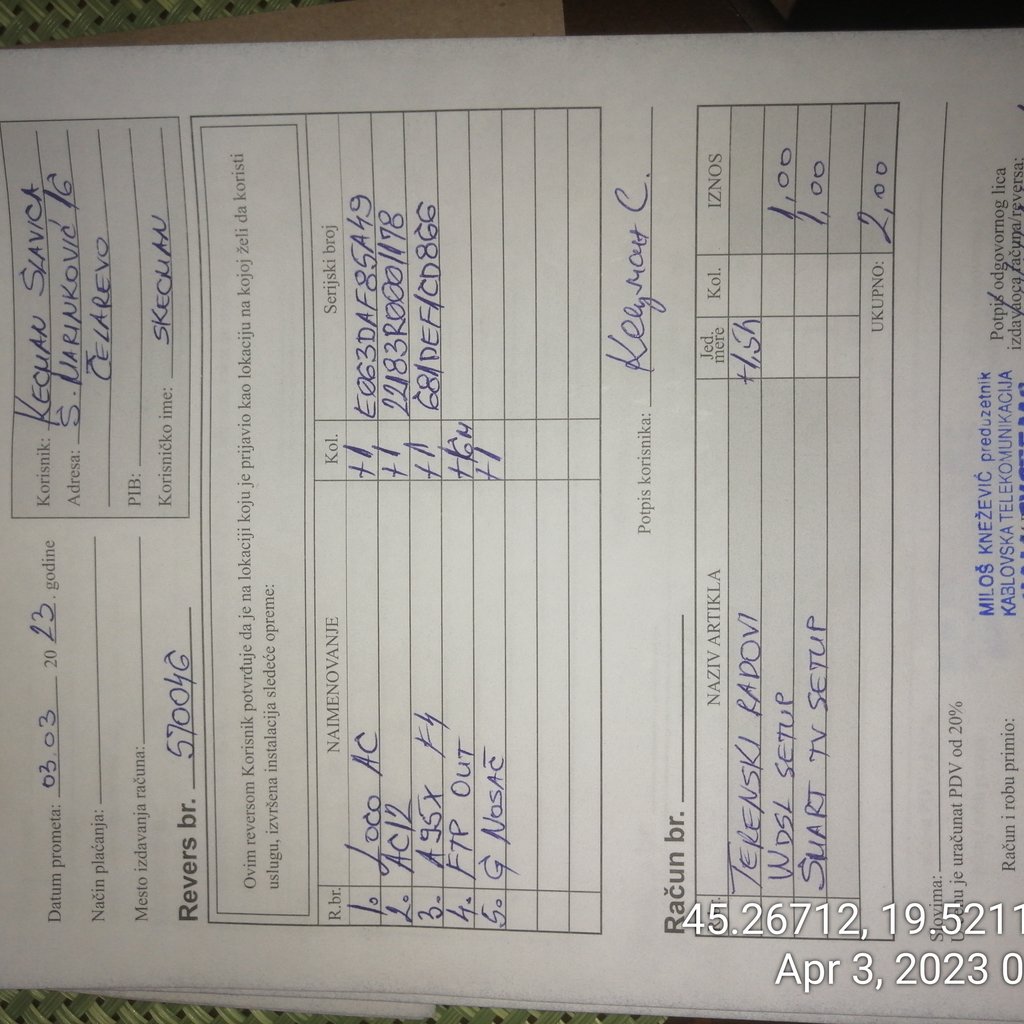 Datum prometa: 03.03 2023. godine
Način plaćanja:
Mesto izdavanja računa:
Korisnik: KECMAN SLAVICA
Adresa: Š. MARINKOVIĆ 16
ČELAREVO
PIB:
Korisničko ime: SKECMAN
Revers br. 570046
Ovim reversom Korisnik potvrđuje da je na lokaciji koju je prijavio kao lokaciju na kojoj želi da koristi
uslugu, izvršena instalacija sledeće opreme:
R.br. NAIMENOVANJE Kol. Serijski broj
1. 1000 AC +1 E063DAF85A49
2. AC12 +1 22183R0001178
3. A95X F4 +1 681DEF1CD866
4. FTP OUT +16M
5. G NOSAČ +1
Potpis korisnika:
Račun br.
NAZIV ARTIKLA Jed. mere Kol. IZNOS
TERENSKI RADOVI +1,5h
WDSL SETUP 1,00
SMART TV SETUP 1,00
UKUPNO: 2,00
Slovima:
U cenu je uračunat PDV od 20%
Račun i robu primio:
MILOŠ KNEŽEVIĆ preduzetnik
KABLOVSKA TELEKOMUNIKACIJA
Potpis odgovornog lica
izdavaoca računa/reversa:
45.26712, 19.5211
Apr 3, 2023 0